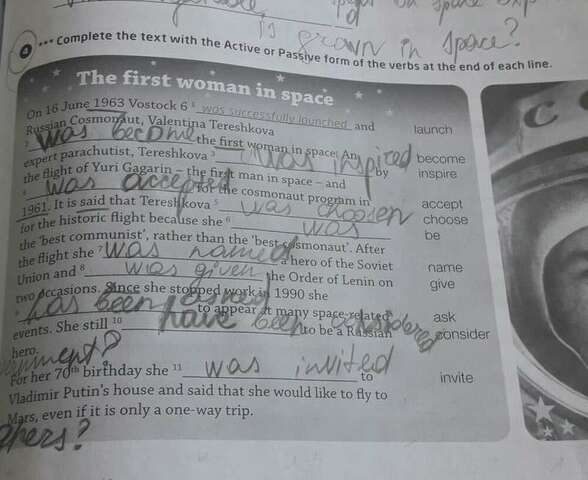 is grown in space?
4 *** Complete the text with the Active or Passive form of the verbs at the end of each line.
The first woman in space
On 16 June 1963 Vostock 6 1 was successfully launched and launch
Russian Cosmonaut, Valentina Tereshkova
2 was become the first woman in space. An become
expert parachutist, Tereshkova 3 was inspired by inspire
the flight of Yuri Gagarin – the first man in space – and
4 was accepted for the cosmonaut program in accept
1961. It is said that Tereshkova 5 was choosen choose
for the historic flight because she 6 was be
the 'best communist', rather than the 'best cosmonaut'. After
the flight she 7 was named a hero of the Soviet name
Union and 8 was given the Order of Lenin on give
two occasions. Since she stopped work in 1990 she
9 has been asked to appear at many space-related ask
events. She still 10 have been considered to be a Russian consider
hero.
For her 70th birthday she 11 was invited to invite
Vladimir Putin's house and said that she would like to fly to
Mars, even if it is only a one-way trip.